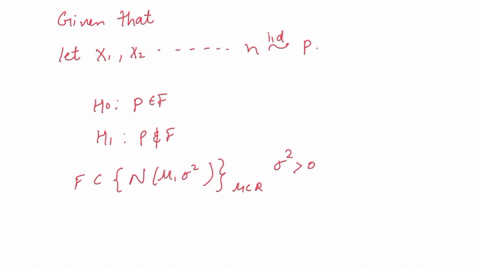 Given that
let X₁, X₂ ------- n iid~ P.
H₀: P∈F
H₁: P∉F
F ⊂ {N(μ, σ²)}μ⊂R σ²>0